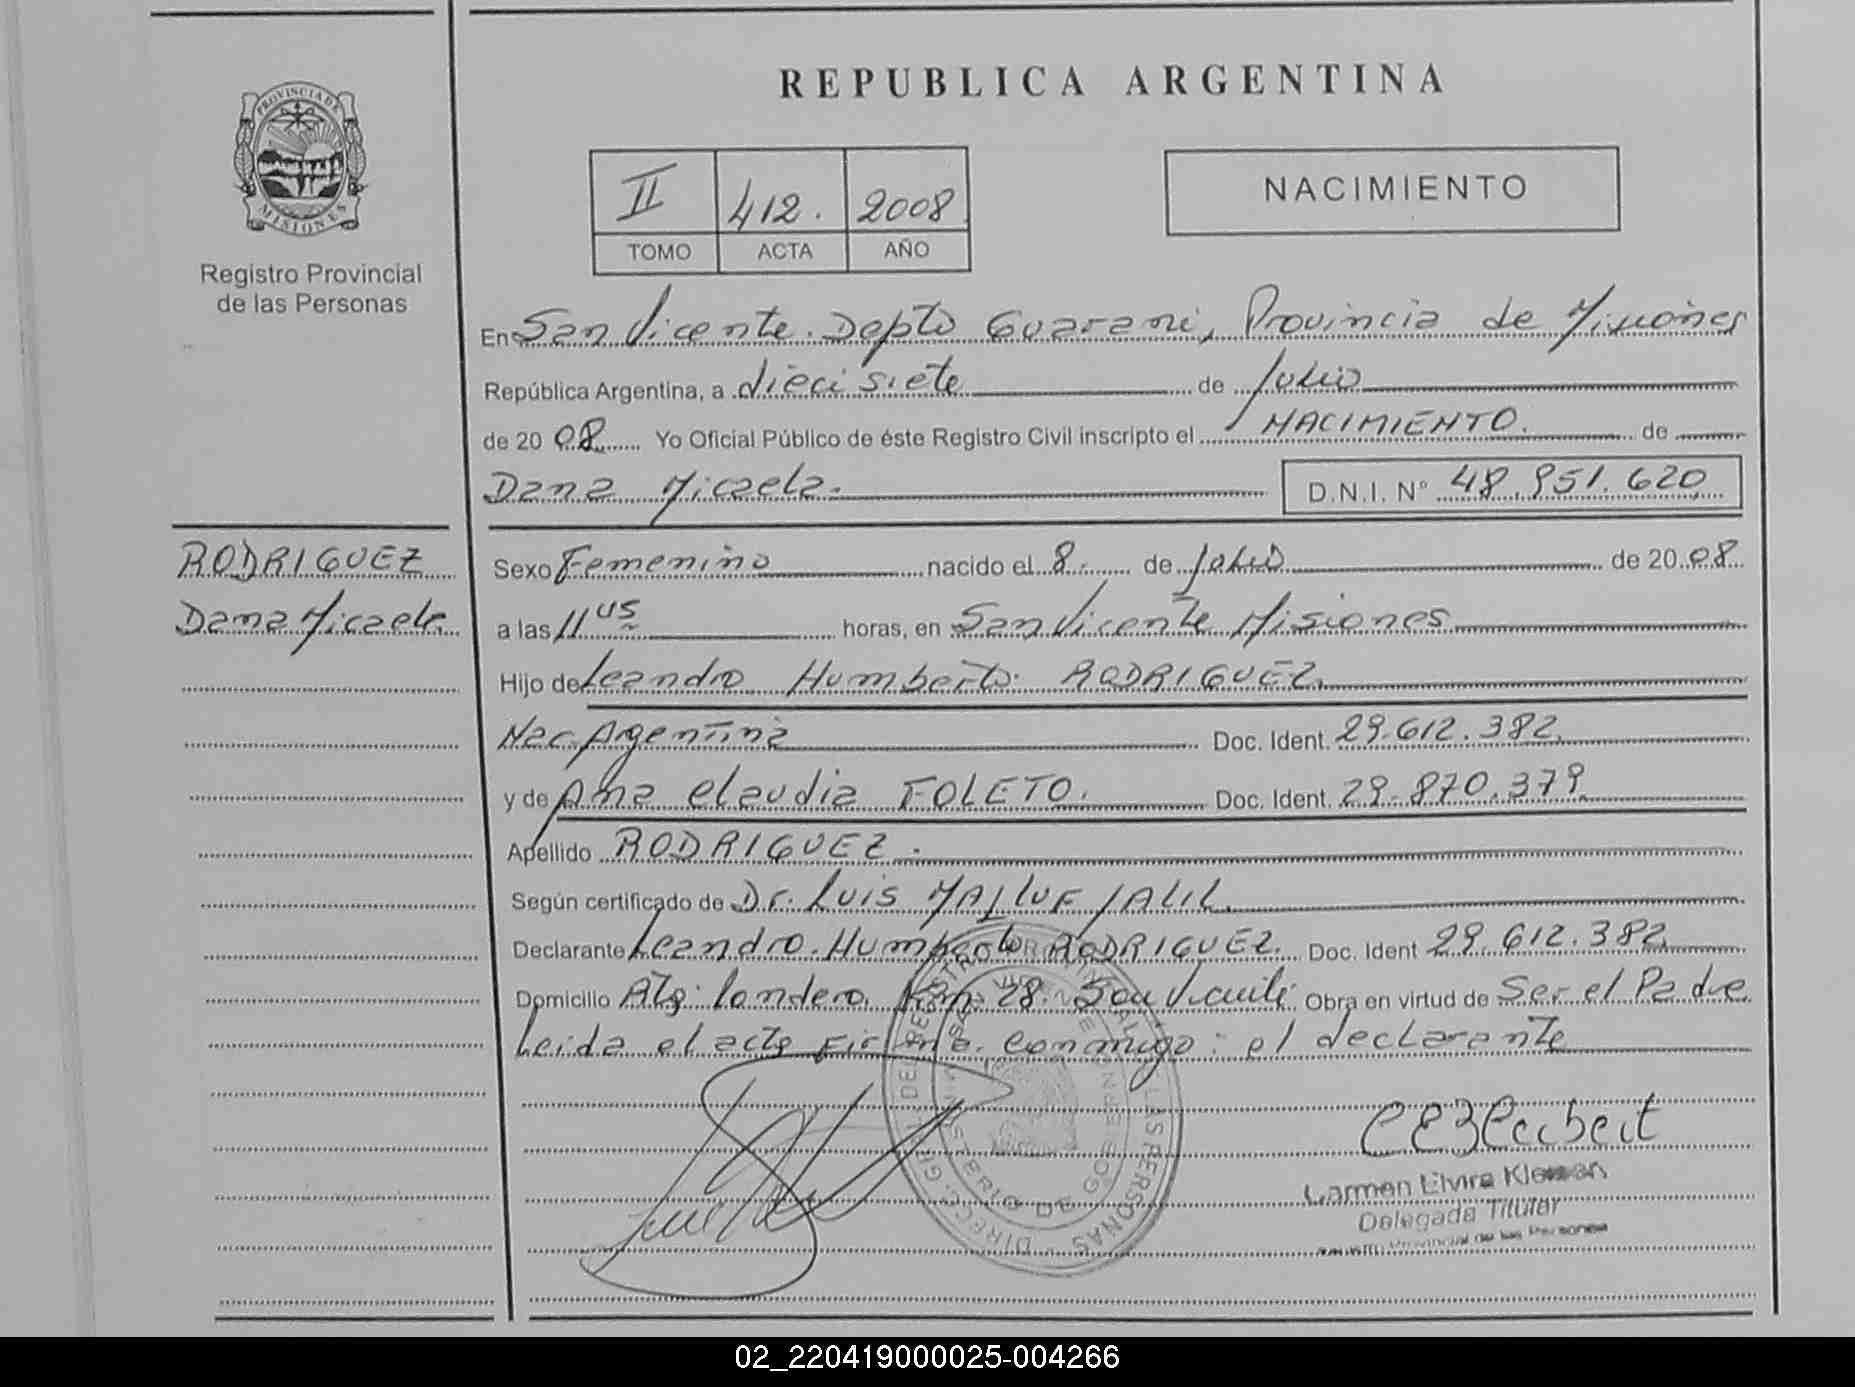 REPUBLICA ARGENTINA
PROVINCIA DE
MISIONES
Registro Provincial
de las Personas
II 412. 2008
TOMO ACTA AÑO
NACIMIENTO
En San Vicente. Depto Guarani, Provincia de Misiones
República Argentina, a diecisiete de Julio
de 20 08 Yo Oficial Público de éste Registro Civil inscripto el NACIMIENTO. de
Dana Micaela. D.N.I. Nº 48.951.620
RODRIGUEZ
Dana Micaela
Sexo Femenino nacido el 8. de Julio de 20 08
a las 11 45 horas, en San Vicente Misiones
Hijo de Leandro Humberto RODRIGUEZ.
Nac. Argentina Doc. Ident. 29.612.382.
y de Ana Claudia FOLETO. Doc. Ident. 29.870.379.
Apellido RODRIGUEZ.
Según certificado de Dr. Luis MALLUF JALIL.
Declarante Leandro. Humberto RODRIGUEZ. Doc. Ident 29.612.382
Domicilio Km 28. San Vicente Obra en virtud de Ser el Padre
Leida el acta Firma. Conmigo: el declarante
Carmen Elvira
Delegada Titular
Provincial de las Personas
02_220419000025-004266